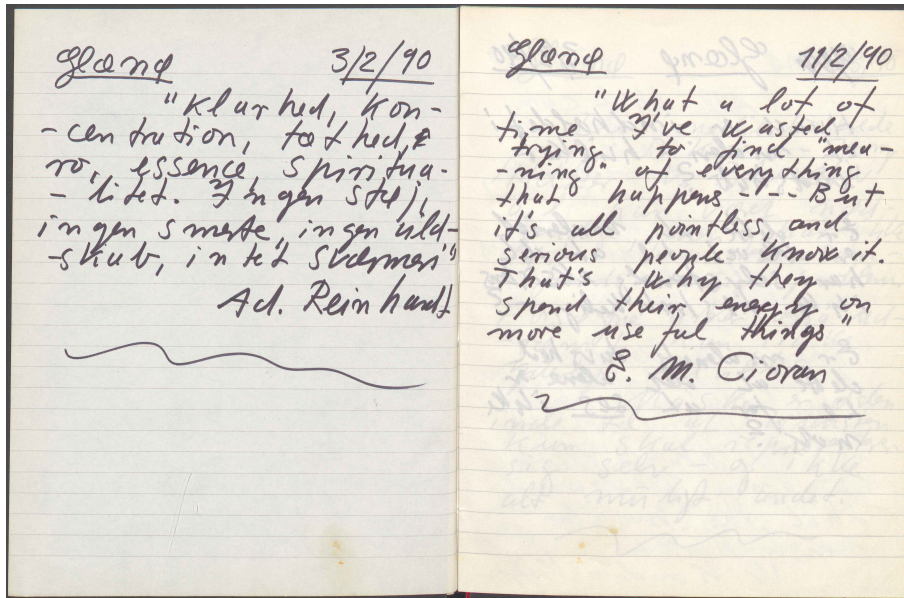 Gland 3/2/90
"Klarhed, Kon-
-centration, tæthed,
ro, essence, spiritua-
-litet. Ingen støj,
ingen smerte, ingen uld-
-skab, intet sværmeri"
Ad. Reinhardt
Gland 11/2/90
"What a lot of
time I've wasted,
trying to find "mea-
-ning" of everything
that happens ---- But
it's all pointless, and
serious people know it.
That's why they
spend their energy on
more useful things"
E. M. Cioran